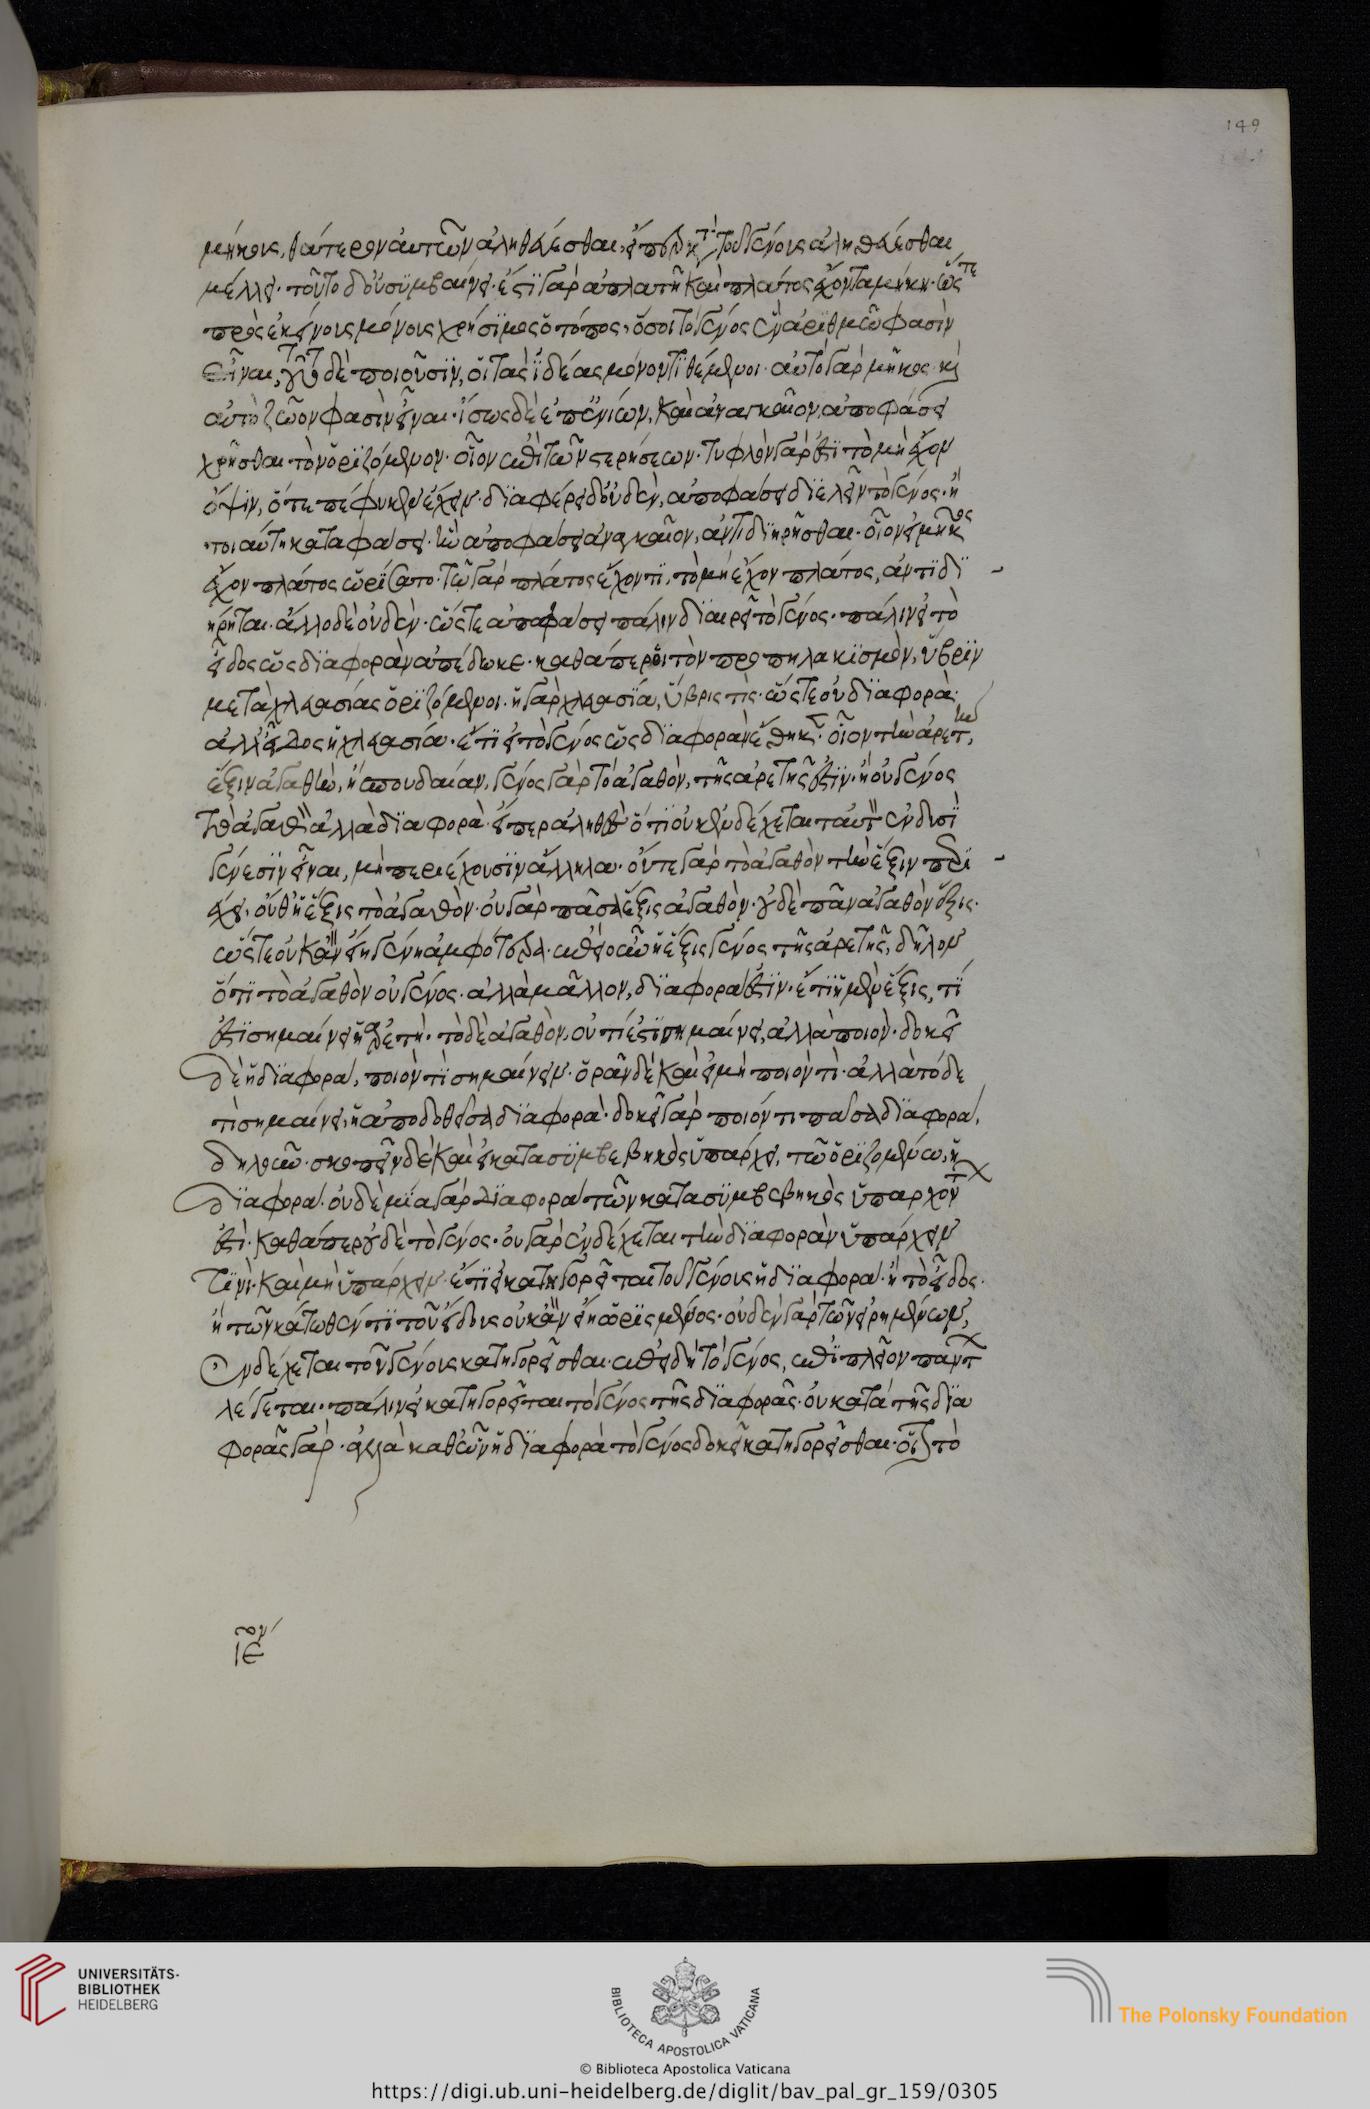 149
μήκους, θάτερον αὐτῶν ἀληθεύεσθαι, εἴπερ κατὰ τοῦ γένους ἀληθεύεσθαι
μέλλει. τοῦτο δ' οὐ συμβαίνει. ἐστὶ γὰρ ἀπλατῆ καὶ πλάτος ἔχοντα μήκη. ὥστε
πρὸς ἐκείνους μόνους χρήσιμος ὁ τόπος, ὅσοι τὸ γένος ἓν ἀριθμῷ φασὶν
εἶναι, τοῦτο δὲ ποιοῦσιν, οἱ τὰς ἰδέας μόνον τιθέμενοι. αὐτὸ γὰρ μῆκος καὶ
αὐτὸ ζῶον φασὶν εἶναι. ἴσως δὲ ἐπ' ἐνίων, καὶ ἀναγκαῖον, ἀποφάσει
χρῆσθαι τὸν ὁριζόμενον. οἷον ἐπὶ τῶν στερήσεων. τυφλὸν γάρ ἐστι τὸ μὴ ἔχον
ὄψιν, ὅτε πέφυκεν ἔχειν. διαφέρει δ' οὐδὲν, ἀποφάσει διελεῖν τὸ γένος. ἢ
τοιαύτη καταφάσει. ᾗ ἀποφάσει ἀναγκαῖον, ἀντιδιῃρῆσθαι. οἷον εἰ μῆκος
ἔχον πλάτος ὡρίσατο. τῷ γὰρ πλάτος ἔχοντι, τὸ μὴ ἔχον πλάτος, ἀντιδι
ήρηται. ἄλλο δὲ οὐδέν. ὥστε ἀποφάσει πάλιν διαιρεῖ τὸ γένος. πάλιν εἰ τὸ
εἶδος ὡς διαφορὰν ἀπέδωκε. καθάπερ οἱ τὸν προπηλακισμὸν, ὕβριν
μετὰ χλευασίας ὁριζόμενοι. ἡ γὰρ χλευασία, ὕβρις τίς. ὥστε οὐ διαφορὰ
ἀλλ' εἶδος ἡ χλευασία. ἔτι εἰ τὸ γένος ὡς διαφορὰν ἔθηκεν. οἷον τὴν ἀρετὴν,
ἕξιν ἀγαθὴν, ἢ σπουδαίαν, γένος γὰρ τὸ ἀγαθὸν, τῆς ἀρετῆς ἐστιν. ἢ οὐ γένος
τὸ ἀγαθὸν ἀλλὰ διαφορὰ. εἴπερ ἀληθὲς ὅτι οὐκ ἐνδέχεται ταὐτὸν ἐν δυσὶ
γένεσιν εἶναι, μὴ περιέχουσιν ἄλληλα. οὔτε γὰρ τὸ ἀγαθὸν τὴν ἕξιν περι
έχει. οὔθ' ἡ ἕξις τὸ ἀγαθὸν. οὐ γὰρ πᾶσα ἕξις ἀγαθὸν. οὐδὲ πᾶν ἀγαθὸν ἕξις.
ὥστε οὐκ ἂν εἴη γένη ἀμφότερα. εἰ οὖν ἡ ἕξις γένος τῆς ἀρετῆς, δῆλον
ὅτι τὸ ἀγαθὸν οὐ γένος. ἀλλὰ μᾶλλον, διαφορά ἐστιν. ἔτι ἡ μὲν ἕξις, τί
ἐστι σημαίνει ἡ ἀρετή. τὸ δὲ ἀγαθὸν, οὐ τί ἐστι σημαίνει, ἀλλὰ ποιόν. δοκεῖ
δὲ ἡ διαφορά, ποιόν τι σημαίνειν. ὁρᾶν δὲ καὶ εἰ μὴ ποιόν τι. ἀλλὰ τόδε
τι σημαίνει, ἡ ἀποδοθεῖσα διαφορά. δοκεῖ γὰρ ποιόν τι πᾶσα διαφορά,
δηλοῦν. σκοπεῖν δὲ καὶ εἰ κατὰ συμβεβηκὸς ὑπάρχει, τῷ ὁριζομένῳ, ἡ
διαφορά. οὐδὲ μία γὰρ διαφορὰ τῶν κατὰ συμβεβηκὸς ὑπαρχόντων
ἐστὶ. καθάπερ οὐδὲ τὸ γένος. οὐ γὰρ ἐνδέχεται τὴν διαφορὰν ὑπάρχειν
τινὶ. καὶ μὴ ὑπάρχειν. ἔτι εἰ κατηγορεῖται τοῦ γένους ἡ διαφορά. ἢ τὸ εἶδος.
ἢ τῶν κάτωθέν τι τοῦ εἴδους οὐκ ἂν εἴη ὡρισμένος. οὐδὲν γὰρ τῶν εἰρημένων,
ἐνδέχεται τοῦ γένους κατηγορεῖσθαι. ἐπειδὴ τὸ γένος, ἐπὶ πλεῖον πάντων
λέγεται. πάλιν εἰ κατηγορεῖται τὸ γένος τῆς διαφορᾶς. οὐ κατὰ τῆς δια
φορᾶς γὰρ. ἀλλὰ καθ' ὧν ἡ διαφορὰ τὸ γένος δοκεῖ κατηγορεῖσθαι. οἷον τὸ
ιε
UNIVERSITÄTS-
BIBLIOTHEK
HEIDELBERG
BIBLIOTECA APOSTOLICA VATICANA
The Polonsky Foundation
© Biblioteca Apostolica Vaticana
https://digi.ub.uni-heidelberg.de/diglit/bav_pal_gr_159/0305